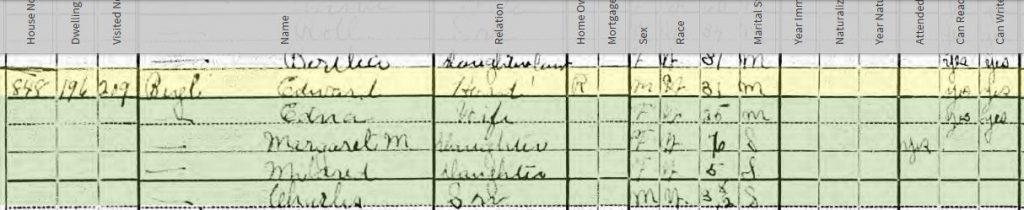 House No Dwelling Visited No Name Relation Home Ow Mortgag Sex Race Marital S Year Imm Naturaliz Year Natu Attended Can Read Can Write
— F W 31 M yes yes
848 196 209 Edward Head R M W 31 M yes yes
— Edna Wife F W 25 M yes yes
— Margaret M Daughter F W 6 S yes
— Mildred Daughter F W 5 S
— Charles Son M W S